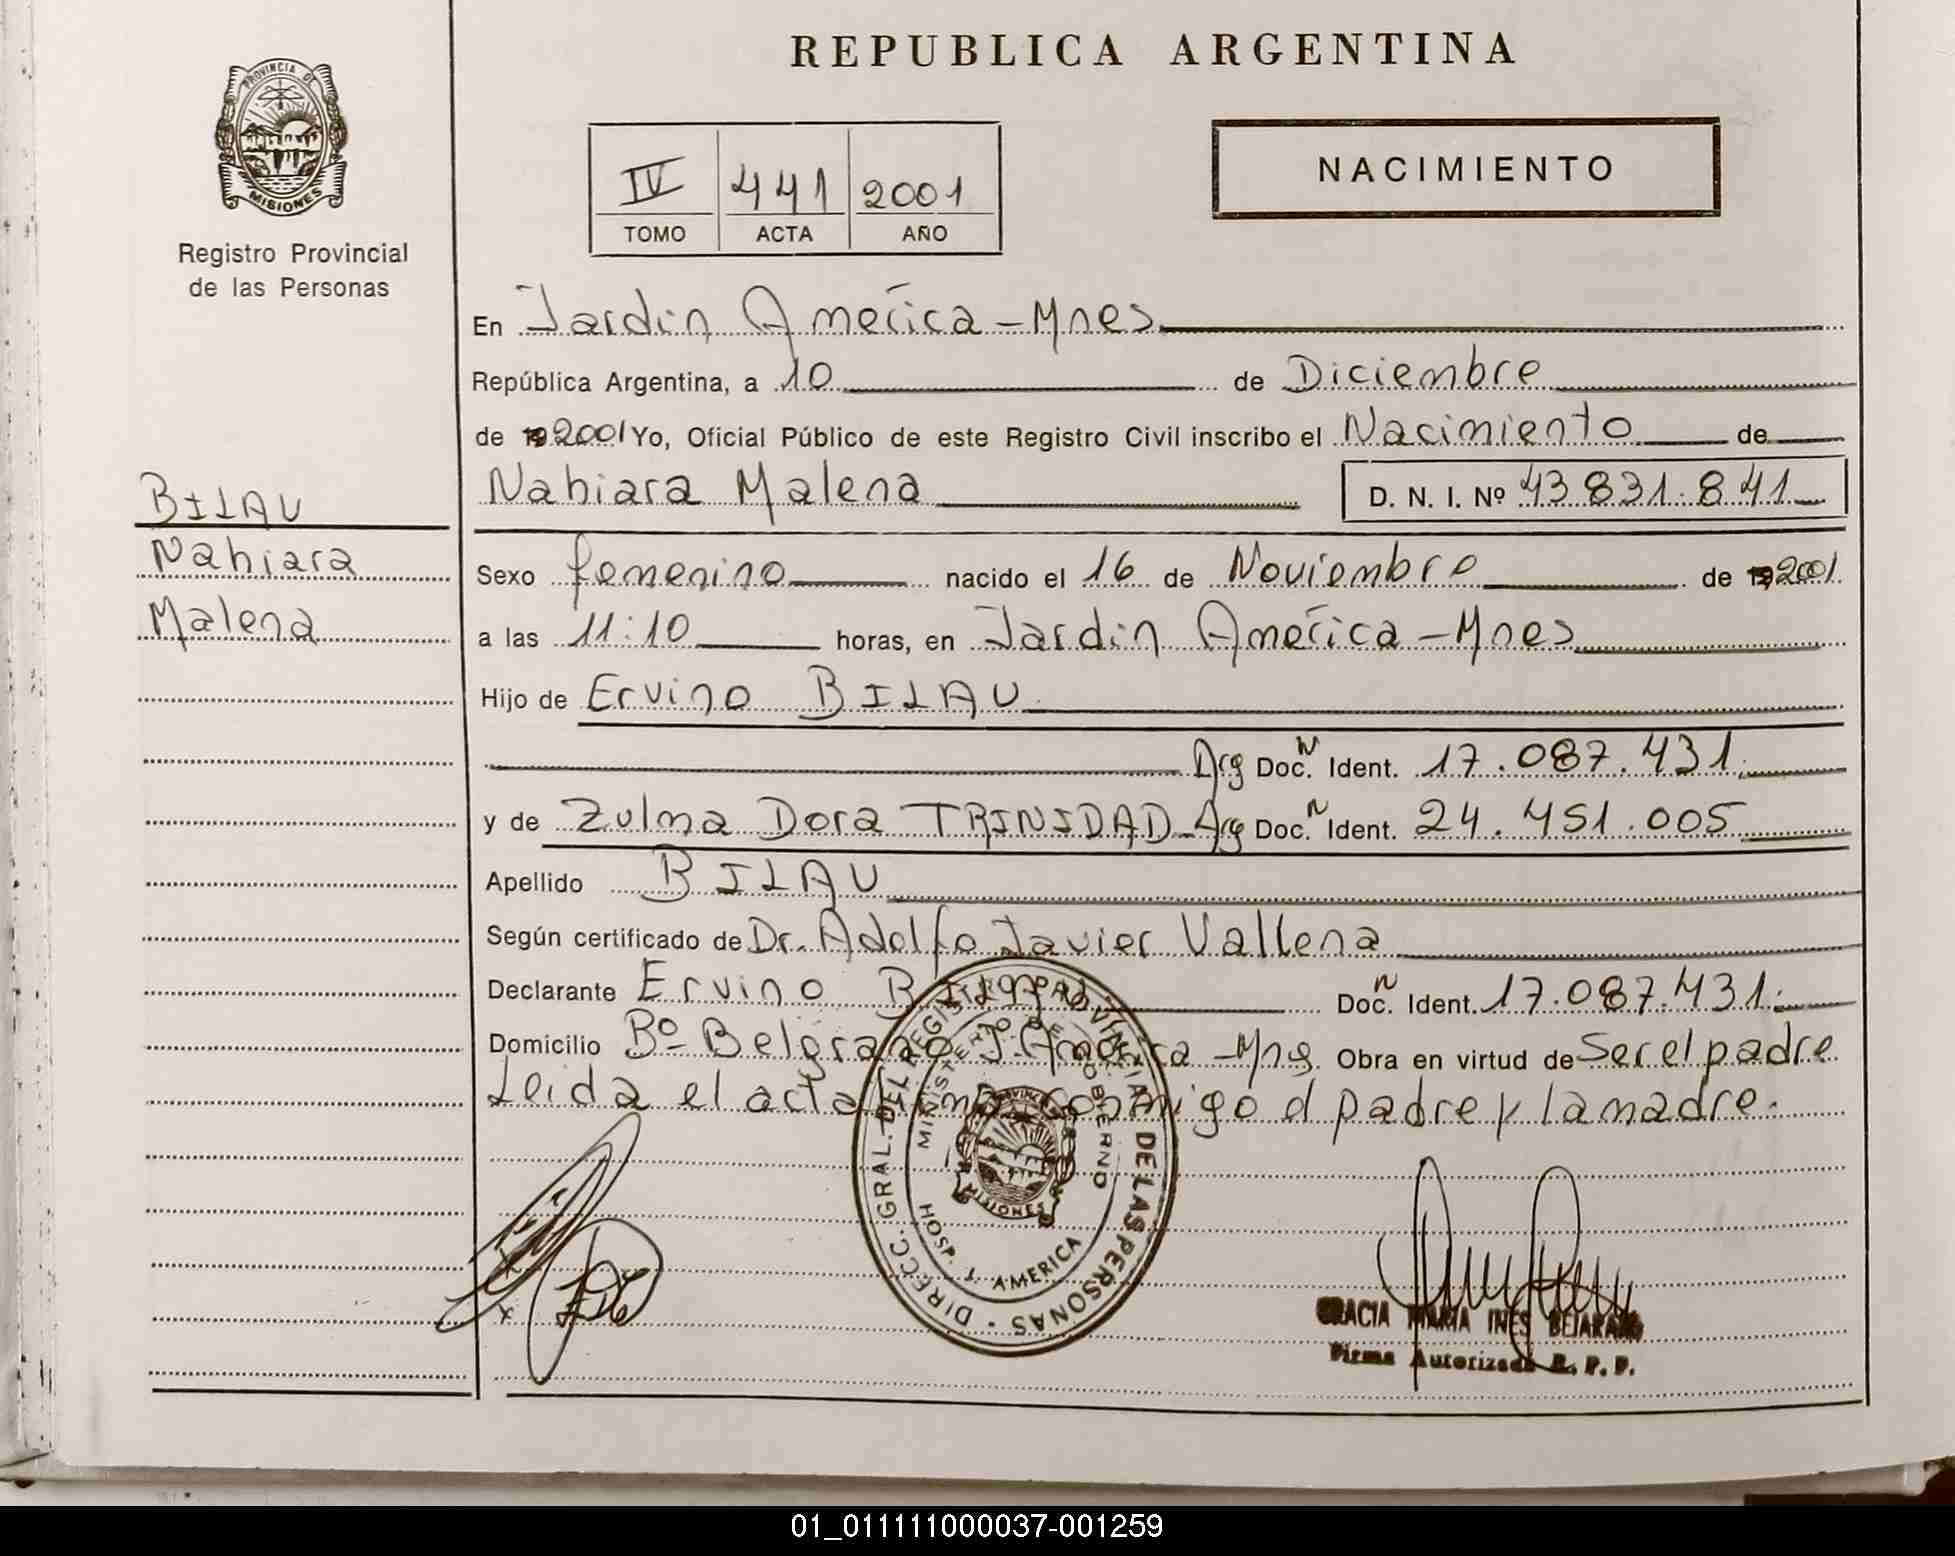 REPUBLICA ARGENTINA
PROVINCIA DE
MISIONES
Registro Provincial
de las Personas
IV 441 2001
TOMO ACTA AÑO
NACIMIENTO
En Jardin América - Mnes
República Argentina, a 10 de Diciembre
de 19 2001 Yo, Oficial Público de este Registro Civil inscribo el Nacimiento de
Nahiara Malena D. N. I. Nº 43 831.841
BILAU
Nahiara
Malena
Sexo femenino nacido el 16 de Noviembre de 19 2001
a las 11:10 horas, en Jardin América - Mnes
Hijo de Ervino BILAU
Arg Doc. N Ident. 17.087.431
y de Zulma Dora TRINIDAD - Arg Doc. N Ident. 24.451.005
Apellido BILAU
Según certificado de Dr. Adolfo Javier Vallena
Declarante Ervino BILAU Doc. N Ident. 17.087.431
Domicilio Bº Belgrano J. América - Mns Obra en virtud de Ser el padre
Leida el acta firma conmigo el padre y la madre.
DIRECC. GRAL. DEL REGISTRO PROVINCIAL DE LAS PERSONAS
MINISTERIO DE GOBIERNO
HOSP. J. AMERICA
PROVINCIA
MISIONES
GRACIA MARIA INES BEJARANO
Firma Autorizada R. P. P.
01_011111000037-001259